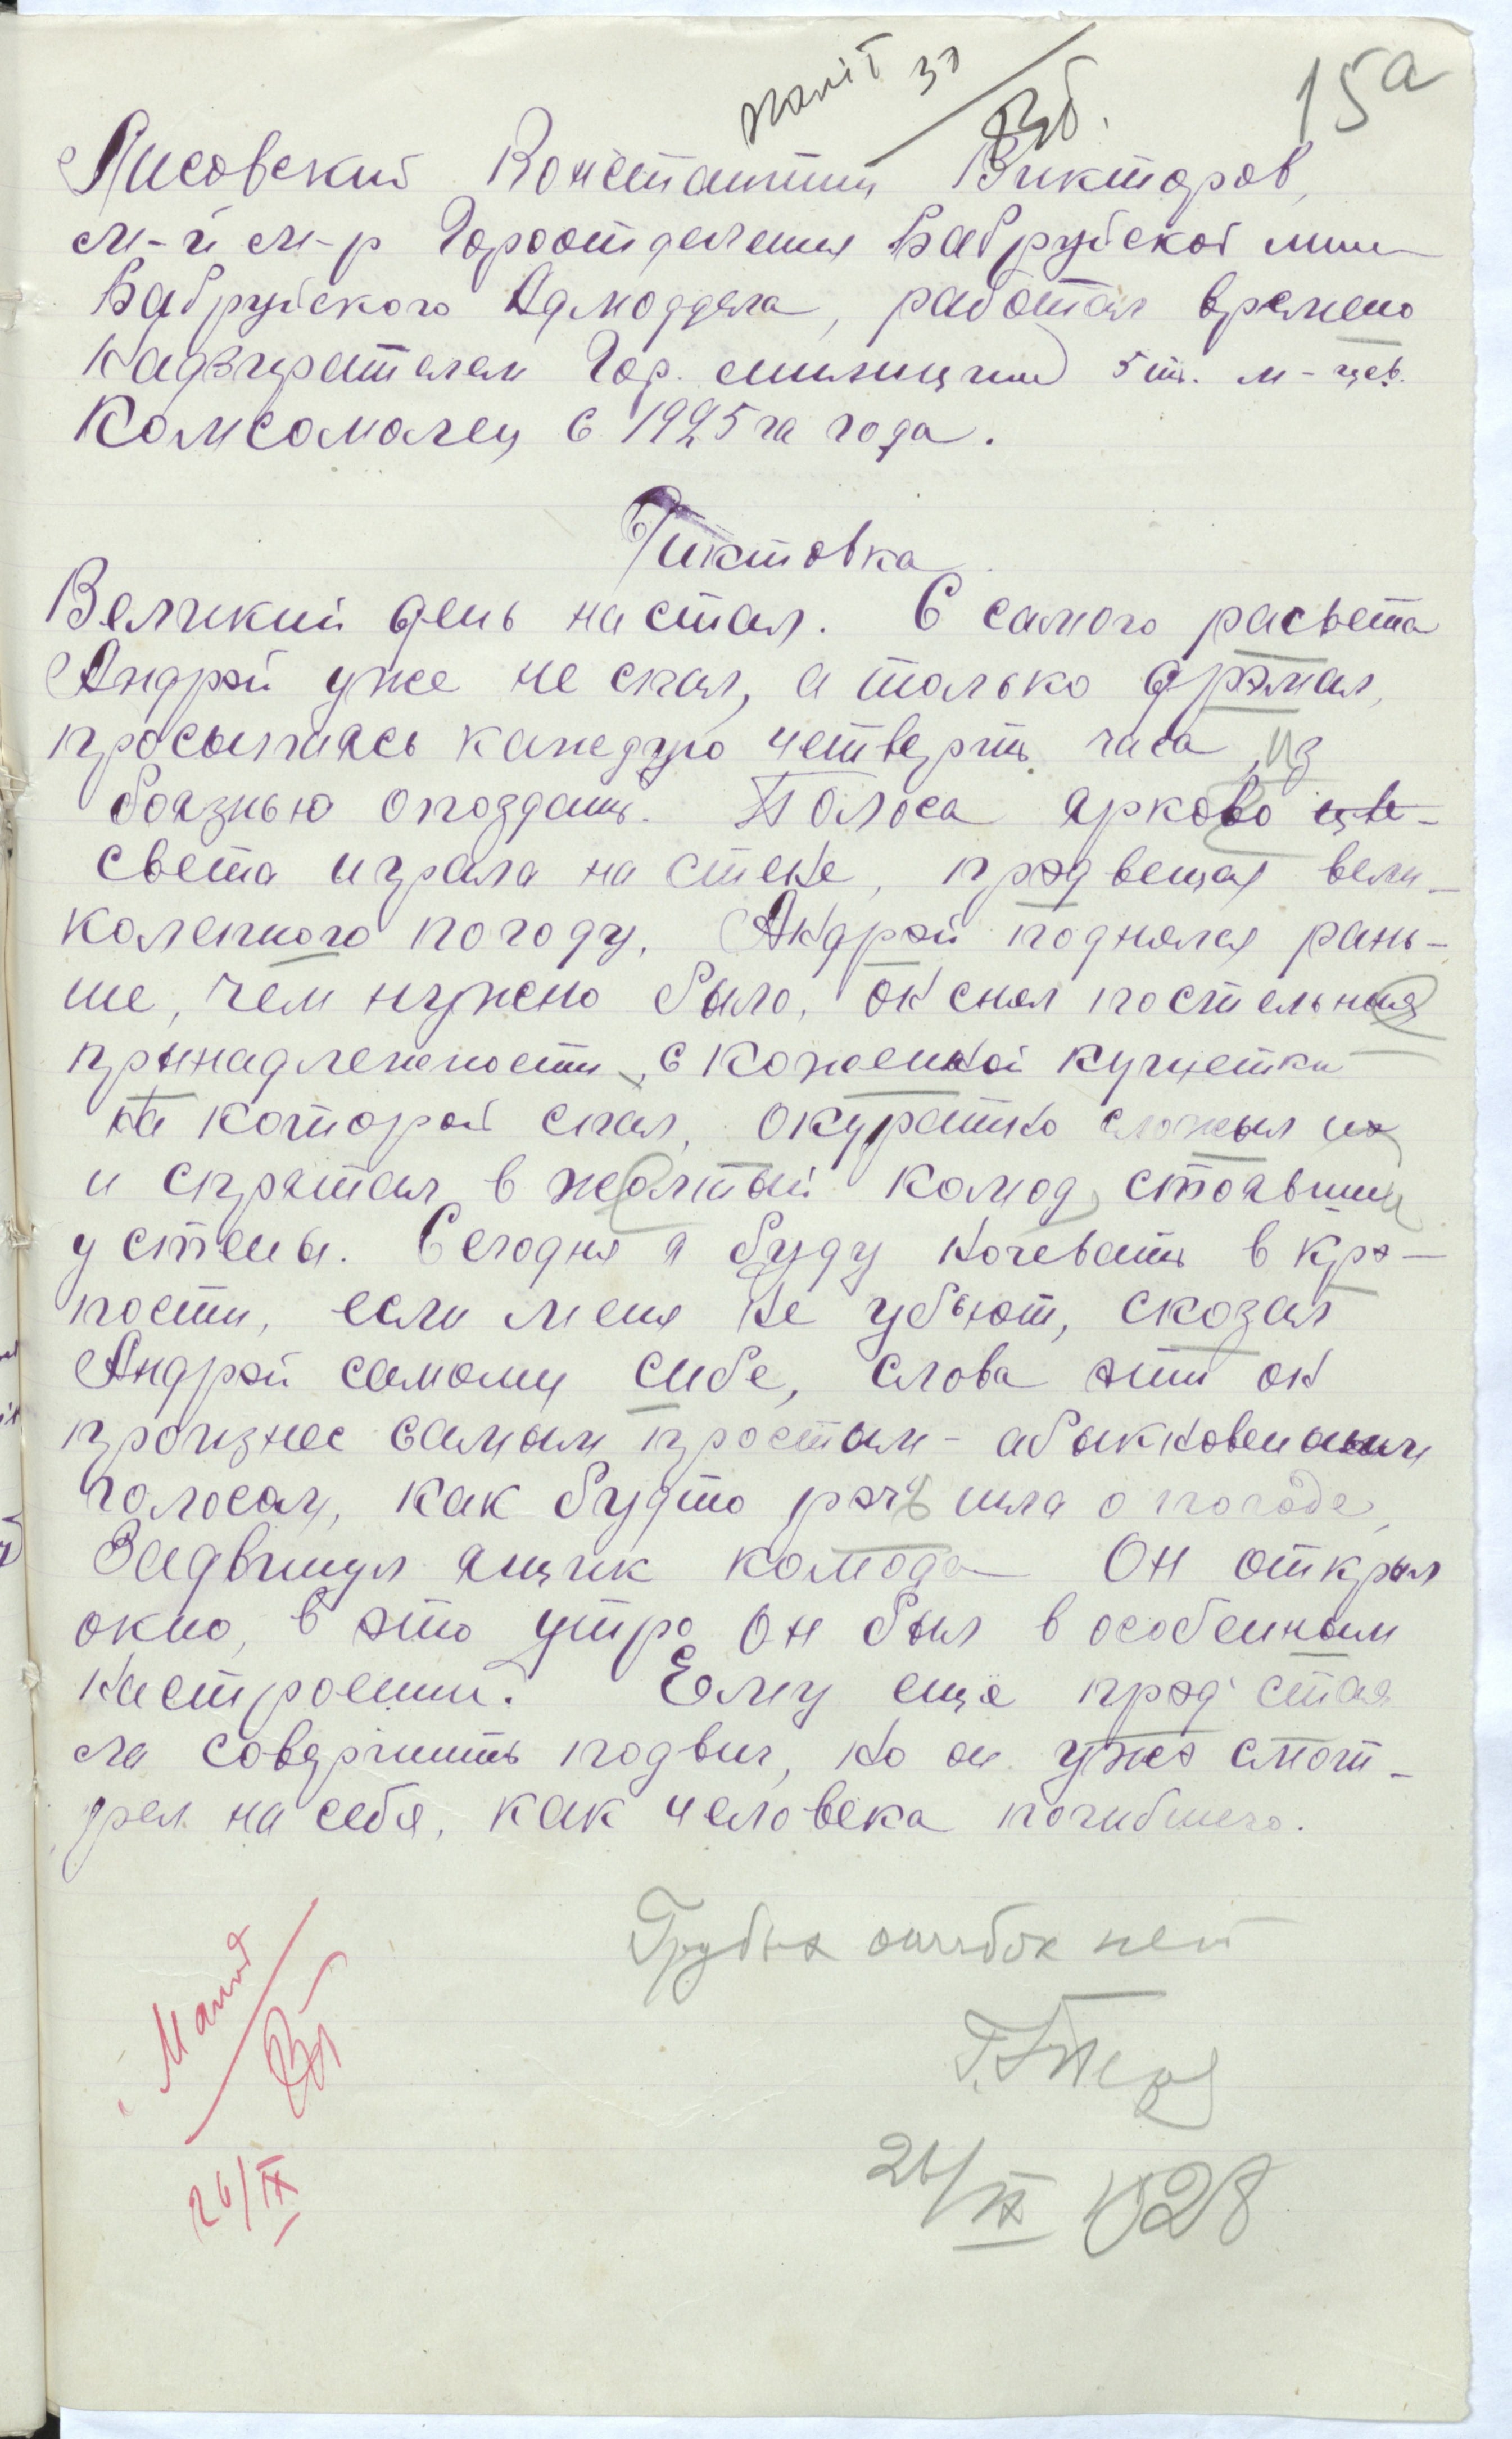 15а
Лисовский Константин Викторов,
м-й м-р Гороотделения Бабруйской мили
Бабруйского Адмоддела, работал времено
надзирателем Гор. милиции 5ть. м-цев.
Комсомолец с 1925га года.
Диктовка
Великий день настал. С самого расвета
Андрэй уже не спал, а только дрэмал,
просыпаясь каждую четверть часа, из
боязнью опоздать. Полоса ярково цве-
света играла на стене, прэдвещая вели-
колепного погоду. Андрэй поднялся рань-
ше, чем нужно было, он снял постельныя
прынадлежности, с коженной кушетки
на которой спал, окуратно сложыл их
и спрятал в жолтый комод, стоявший
у стены. Сегодня я буду ночевать в крэ-
пости, если меня не убьют, скозал
Андрэй самому сибе, слова эти он
произнес самым простым-абыкновеным
голосом, как будто рэчь шла о погоде,
Задвинул ящик комода Он открыл
окно, в это утро он был в особенным
настроении. Ему ещё прэдстая
ла совершить подвиг, но он ужэ смот-
рел на себя, как человека погибшего.
Грубых ошибок нет
26/IX 1928
26/IX